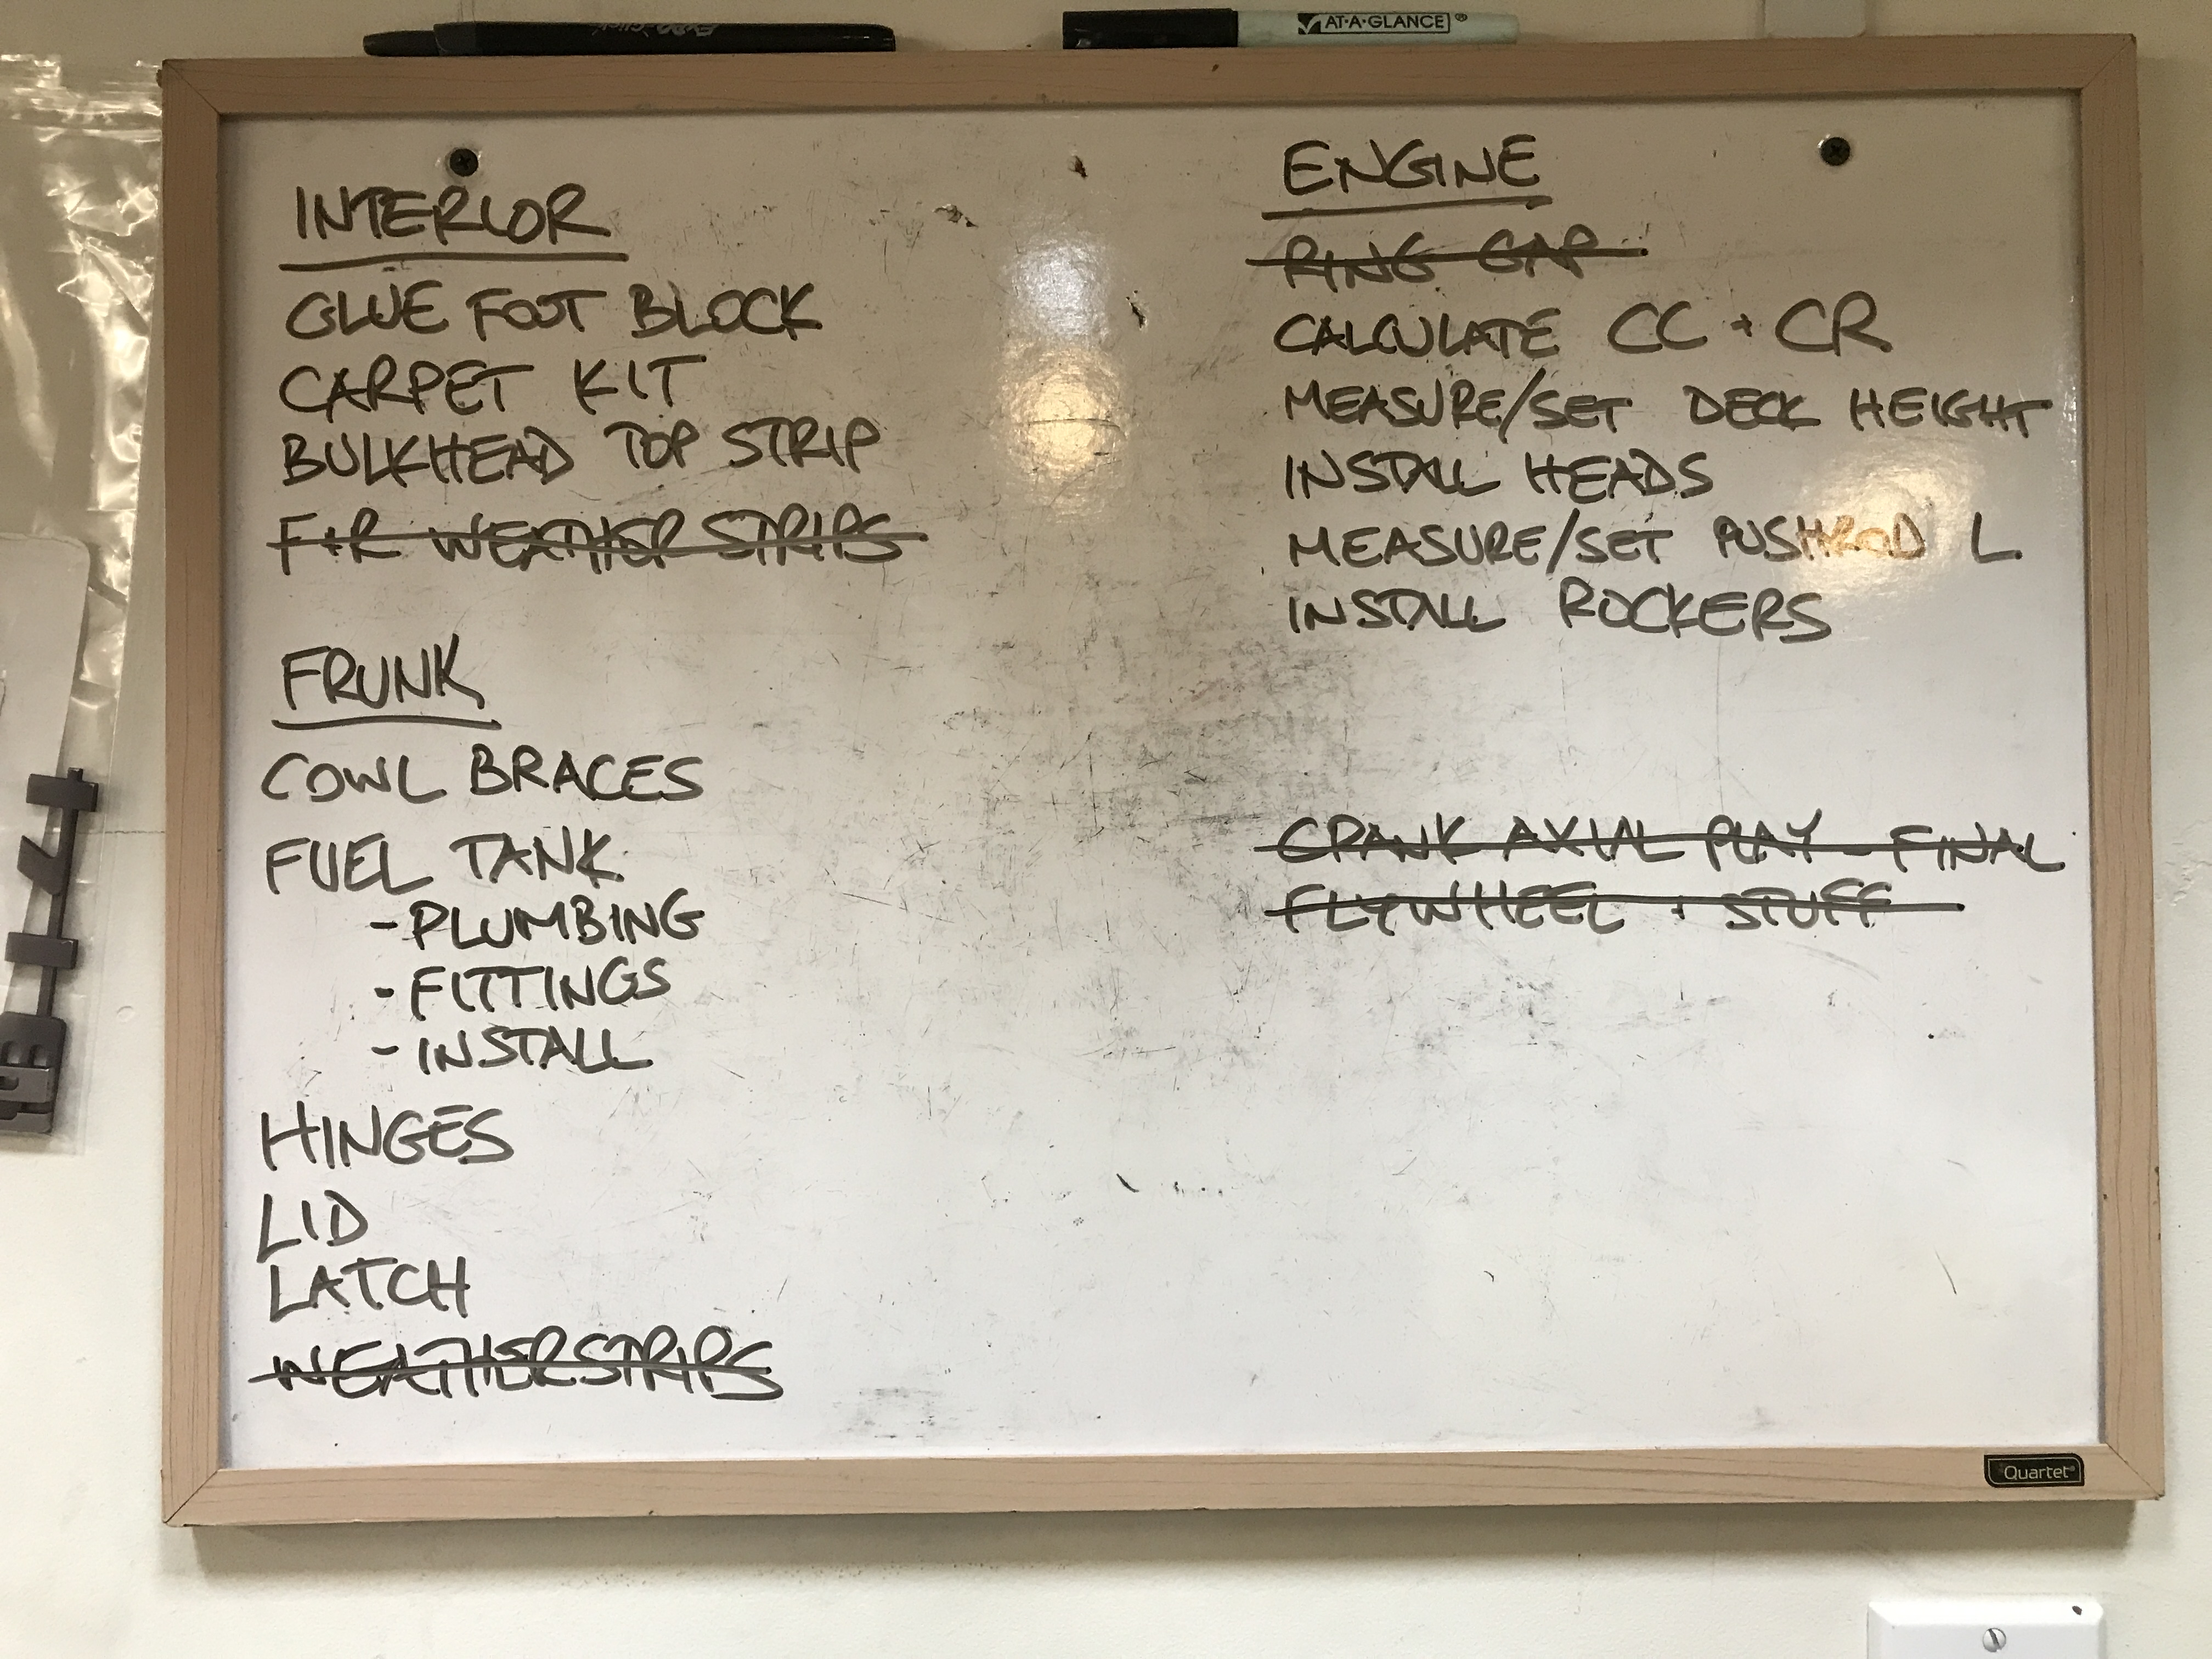 AT-A-GLANCE®
INTERIOR
GLUE FOOT BLOCK
CARPET KIT
BULKHEAD TOP STRIP
F+R WEATHER STRIPS
FRUNK
COWL BRACES
FUEL TANK
-PLUMBING
-FITTINGS
-INSTALL
HINGES
LID
LATCH
WEATHERSTRIPS
ENGINE
RING GAP
CALCULATE CC + CR
MEASURE/SET DECK HEIGHT
INSTALL HEADS
MEASURE/SET PUSHROD L
INSTALL ROCKERS
CRANK AXIAL PLAY - FINAL
FLYWHEEL + STUFF
Quartet